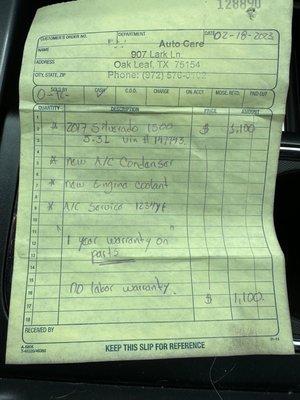 128890
CUSTOMER'S ORDER NO. DEPARTMENT DATE 02-18-2023
NAME Auto Care
907 Lark Ln.
ADDRESS Oak Leaf, TX 75154
CITY, STATE, ZIP Phone: (972) 576-0102
SOLD BY CASH C.O.D. CHARGE ON. ACCT. MDSE. RETD. PAID OUT
QUANTITY DESCRIPTION PRICE AMOUNT
* 2017 Silverado 1500 $ 1,100
5.3L Vin #
* New A/C Condenser
* New Engine Coolant
* A/C Service 1234yf
" "
1 year warranty on
parts
NO labor warranty. $ 1,100.
RECEIVED BY
KEEP THIS SLIP FOR REFERENCE